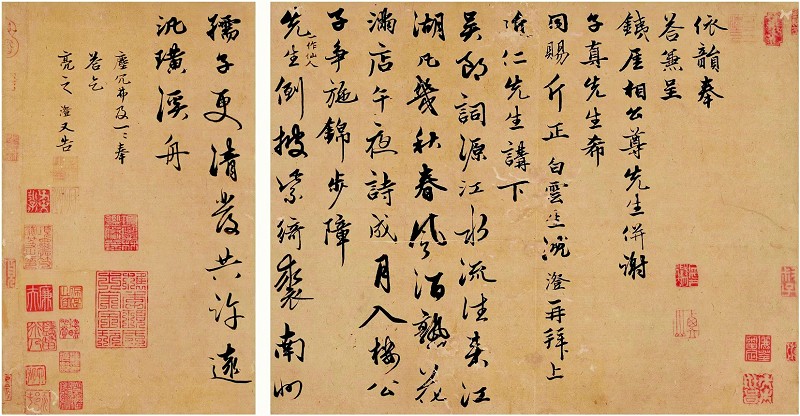 依韻奉
荅兼呈
鐵厓相公尊先生併謝
子真先生希
同賜 斤正 白雲 澄再拜上
仁先生講下
吳郎詞源江水流往來江
湖凡幾秋春風酒熟花
滿店午夜詩成月入樓公
子爭施錦步障
一作仙人
先生倒披紫綺裘南州
孺子更清發共許遠
汎璜溪舟
塵冗弗及一一奉
荅乞
亮之 澄又告